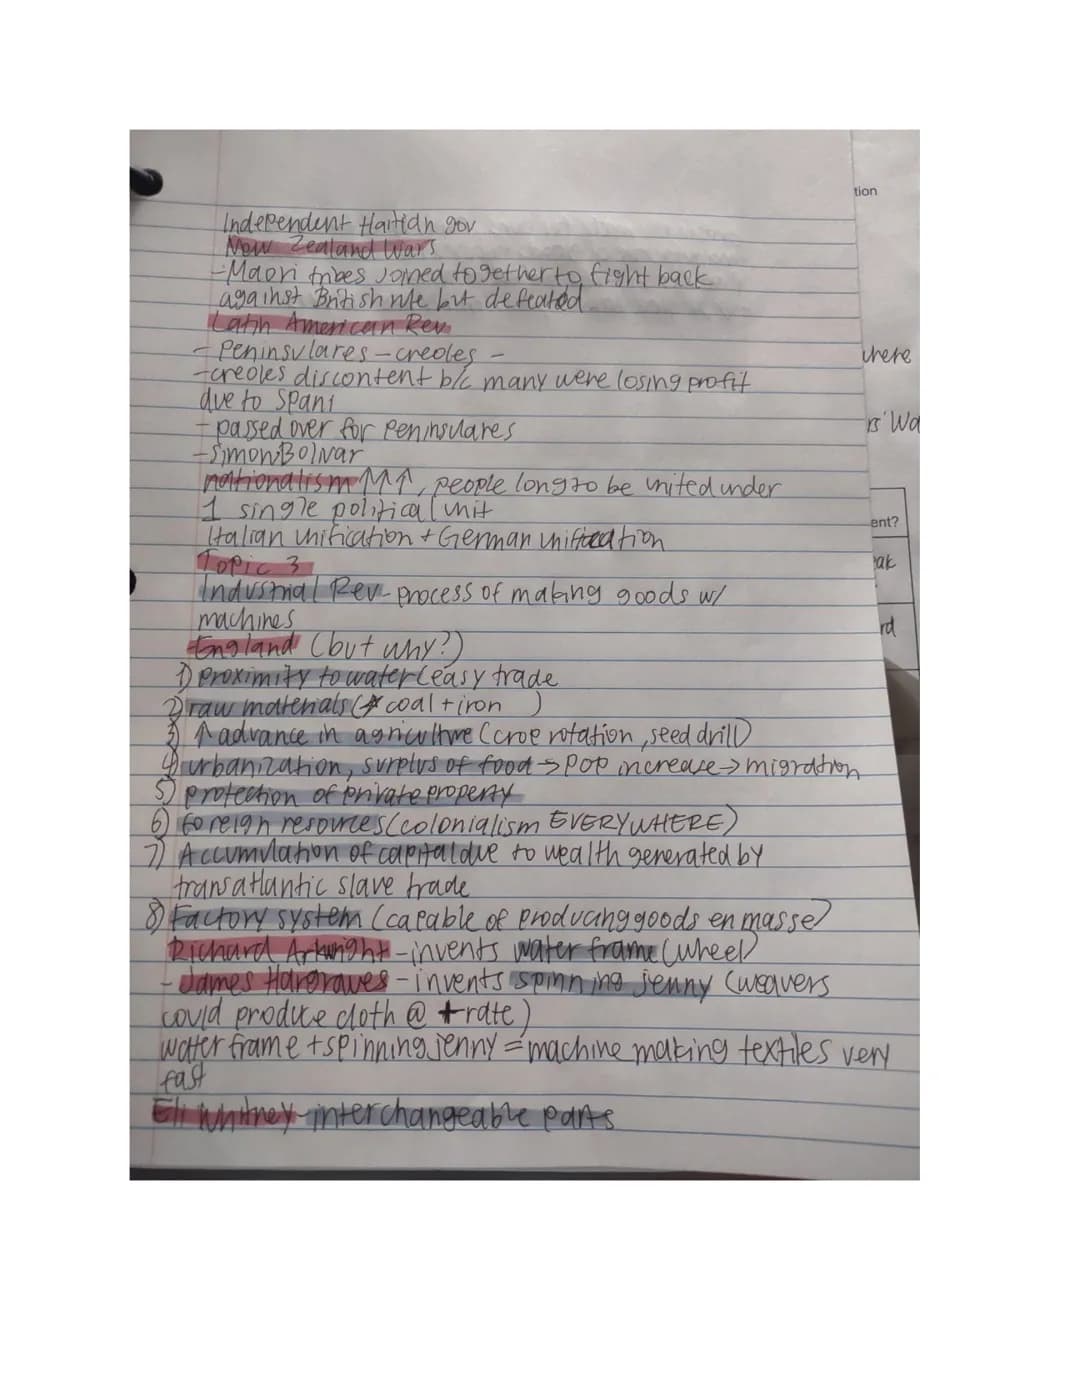 Independent Haitian gov
New Zealand Wars
-Maori tribes joined together to fight back
against British rule but defeated
Latin American Rev
- Peninsulares - creoles -
-creoles discontent b/c many were losing profit
due to Spani
- passed over for Peninsulares
-Simon Bolivar
nationalism ↑↑↑, people long to be united under
1 single political unit
Italian unification + German unification
Topic 3
Industrial Rev- process of making goods w/
machines
England (but why?)
1) Proximity to water (easy trade
2) raw materials ( coal + iron )
3) ↑ advance in agriculture (croe rotation, seed drill)
4) urbanization, surplus of food → pop increase → migration
5) protection of private property
6) Foreign resources (colonialism EVERYWHERE)
7) Accumulation of capital due to wealth generated by
transatlantic slave trade
8) Factory system (capable of producing goods en masse)
Richard Arkwright - invents water frame (wheel)
- James Hargraves - invents spinning jenny (weavers
could produce cloth @ + rate)
water frame + spinning jenny = machine making textiles very
fast
Eli Whitney - interchangeable parts
tion
where
rs' Wa
ent?
eak
rd